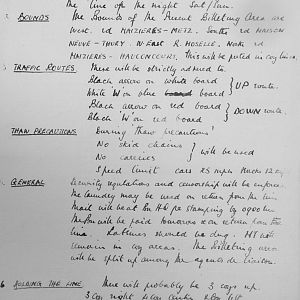 the line of the night Sat/Sun.
BOUNDS The Bounds of the Present Billeting Area are
West. rd MAIZIERES - METZ. South. rd MAISON
NEUVE - THURY. N-East R. MOSELLE. North rd
MAZIERES - HAUCONCOURT. This will be patrolled in coy lines.
TRAFFIC ROUTES These will be strictly adhered to.
Black arrow on white board
White W on blue board } UP route.
Black arrow on red board
Black W on red board } DOWN route.
THAW PRECAUTIONS During 'Thaw precautions'
No skid chains
No carriers } will be used
Speed limit cars 25 mph trucks 12 mph
GENERAL Security regulations and censorship will be enforced.
The laundry may be used on return from the line
Mail will be at Bn HQ for stamping by 0900 hrs
The Bn will be paid tomorrow or on return from the
line. Latrines should be dug. M.T. will
remain in coy areas. The Billeting area
will be split up among the
6 HOLDING THE LINE There will probably be 3 coys up.
3 coys right